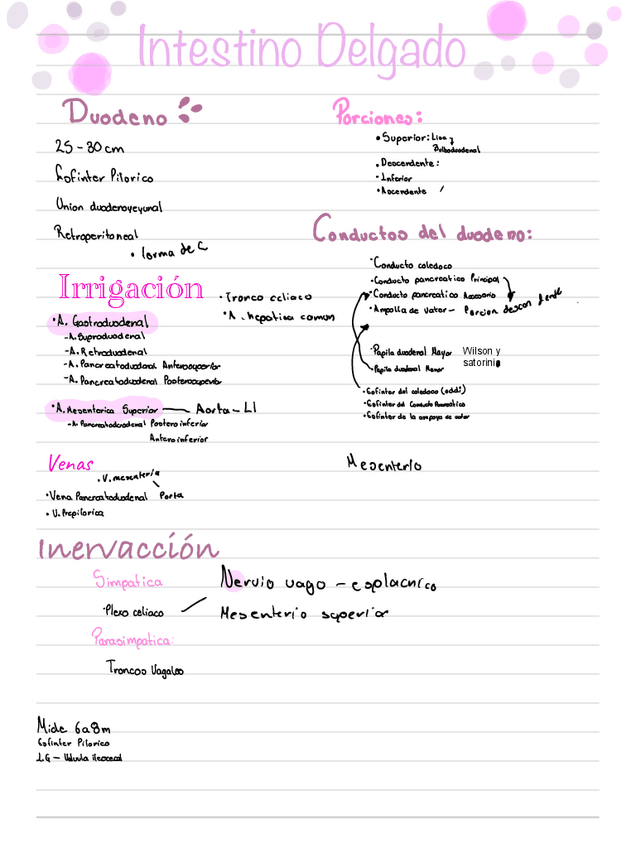 Intestino Delgado
Duodeno
25-30cm
Esfinter Pilorico
Union duodenoyeyunal
Retroperitoneal
• forma de C
Porciones:
• Superior: Lisa y
Bulboduodenal
• Descendente:
- Inferior
• Ascendente
Conductos del duodeno:
• Conducto coledoco
• Conducto pancreatico Principal
• Conducto pancreatico Accesorio
• Ampolla de Vater - Porcion descendente
• Papila duodenal Mayor Wilson y
satorini
• Papila duodenal Menor
• Esfinter del coledoco (oddi)
• Esfinter del Conducto Pancreatico
• Esfinter de la ampoya de vater
Irrigación
• Tronco celiaco
• A. hepatica comun
• A. Gastroduodenal
- A. Supraduodenal
- A. Retroduodenal
- A. Pancreatoduodenal Anterosuperior
- A. Pancreatoduodenal Posterosuperior
• A. Mesenterica Superior — Aorta - L1
- A. Pancreatoduodenal Postero inferior
Antero inferior
Venas
• V. mesenteria
• Vena Pancreatoduodenal Porta
• V. Prepilorica
Mesenterio
Inervacción
Simpatica
Nervio vago - esplacnico
• Plexo celiaco
Mesenterio superior
Parasimpatica:
Troncos Vagales
Mide 6a8m
Esfinter Pilorico
I.G - Valvula ileocecal